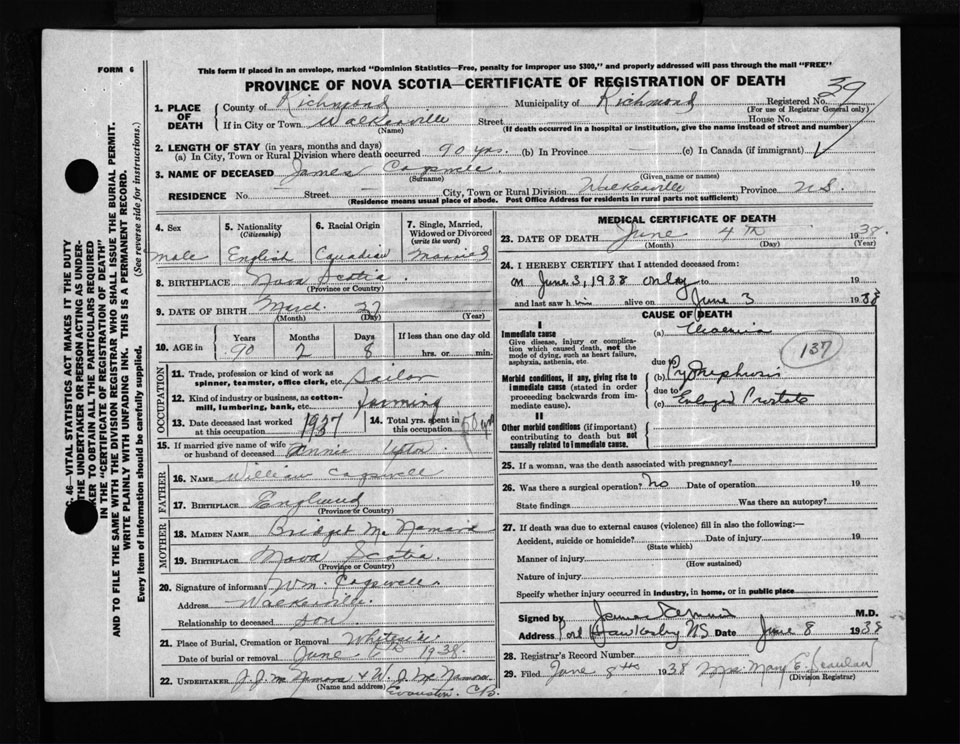 FORM 6
This form if placed in an envelope, marked "Dominion Statistics—Free, penalty for improper use $300," and properly addressed will pass through the mail "FREE"
PROVINCE OF NOVA SCOTIA—CERTIFICATE OF REGISTRATION OF DEATH
39
1. PLACE OF DEATH
County of Richmond Municipality of Richmond Registered No.
(For use of Registrar General only)
If in City or Town Walkerville Street House No.
(Name) (If death occurred in a hospital or institution, give the name instead of street and number)
2. LENGTH OF STAY (in years, months and days)
(a) In City, Town or Rural Division where death occurred 90 yrs. (b) In Province — (c) In Canada (if immigrant)
3. NAME OF DECEASED James
(Surname) (Given name or names)
RESIDENCE No. — Street — City, Town or Rural Division Walkerville Province N.S.
(Residence means usual place of abode. Post Office Address for residents in rural parts not sufficient)
4. Sex
male
5. Nationality
(Citizenship)
English
6. Racial Origin
Canadian
7. Single, Married, Widowed or Divorced
(write the word)
Married
8. BIRTHPLACE Nova Scotia
(Province or Country)
9. DATE OF BIRTH March 27
(Month) (Day) (Year)
10. AGE in
Years Months Days If less than one day old
90 2 8 hrs. or min.
OCCUPATION
11. Trade, profession or kind of work as spinner, teamster, office clerk, etc. Sailor
12. Kind of industry or business, as cotton-mill, lumbering, bank, etc. farming
13. Date deceased last worked at this occupation 1937
14. Total yrs. spent in this occupation
15. If married give name of wife or husband of deceased Annie
FATHER
16. NAME William
17. BIRTHPLACE England
(Province or Country)
MOTHER
18. MAIDEN NAME Bridget McNamara
19. BIRTHPLACE Nova Scotia
(Province or Country)
20. Signature of informant Wm. Cogswell
Address Walkerville
Relationship to deceased son
21. Place of Burial, Cremation or Removal
Date of burial or removal June 6th 1938.
22. UNDERTAKER J. J. McNamara & W. J. McNamara
(Name and address) Evanston C.B.
MEDICAL CERTIFICATE OF DEATH
23. DATE OF DEATH June 4th 1938.
(Month) (Day) (Year)
24. I HEREBY CERTIFY that I attended deceased from:
on June 3, 1938 only to 19
and last saw him alive on June 3 1938
CAUSE OF DEATH
I
Immediate cause
Give disease, injury or complication which caused death, not the mode of dying, such as heart failure, asphyxia, asthenia, etc.
(a) Uraemia
137
Morbid conditions, if any, giving rise to immediate cause (stated in order proceeding backwards from immediate cause).
due to
(b) Pyonephrosis
due to
(c) Enlarged Prostate
II
Other morbid conditions (if important) contributing to death but not causally related to immediate cause.
25. If a woman, was the death associated with pregnancy?
26. Was there a surgical operation? No Date of operation 19
State findings Was there an autopsy?
27. If death was due to external causes (violence) fill in also the following:—
Accident, suicide or homicide? Date of injury 19
(State which)
Manner of injury
(How sustained)
Nature of injury
Specify whether injury occurred in Industry, in home, or in public place
Signed by James M.D.
Address Port Hawkesbury NS Date June 8 1938
28. Registrar's Record Number
29. Filed June 8th 1938 Mrs. Mary E. Scanlan
(Division Registrar)
C. 46—VITAL STATISTICS ACT MAKES IT THE DUTY
THE UNDERTAKER OR PERSON ACTING AS UNDER-
KER TO OBTAIN ALL THE PARTICULARS REQUIRED
IN THE "CERTIFICATE OF REGISTRATION OF DEATH"
AND TO FILE THE SAME WITH THE DIVISION REGISTRAR WHO SHALL ISSUE THE BURIAL PERMIT.
WRITE PLAINLY WITH UNFADING INK. THIS IS A PERMANENT RECORD.
Every item of information should be carefully supplied. (See reverse side for instructions.)